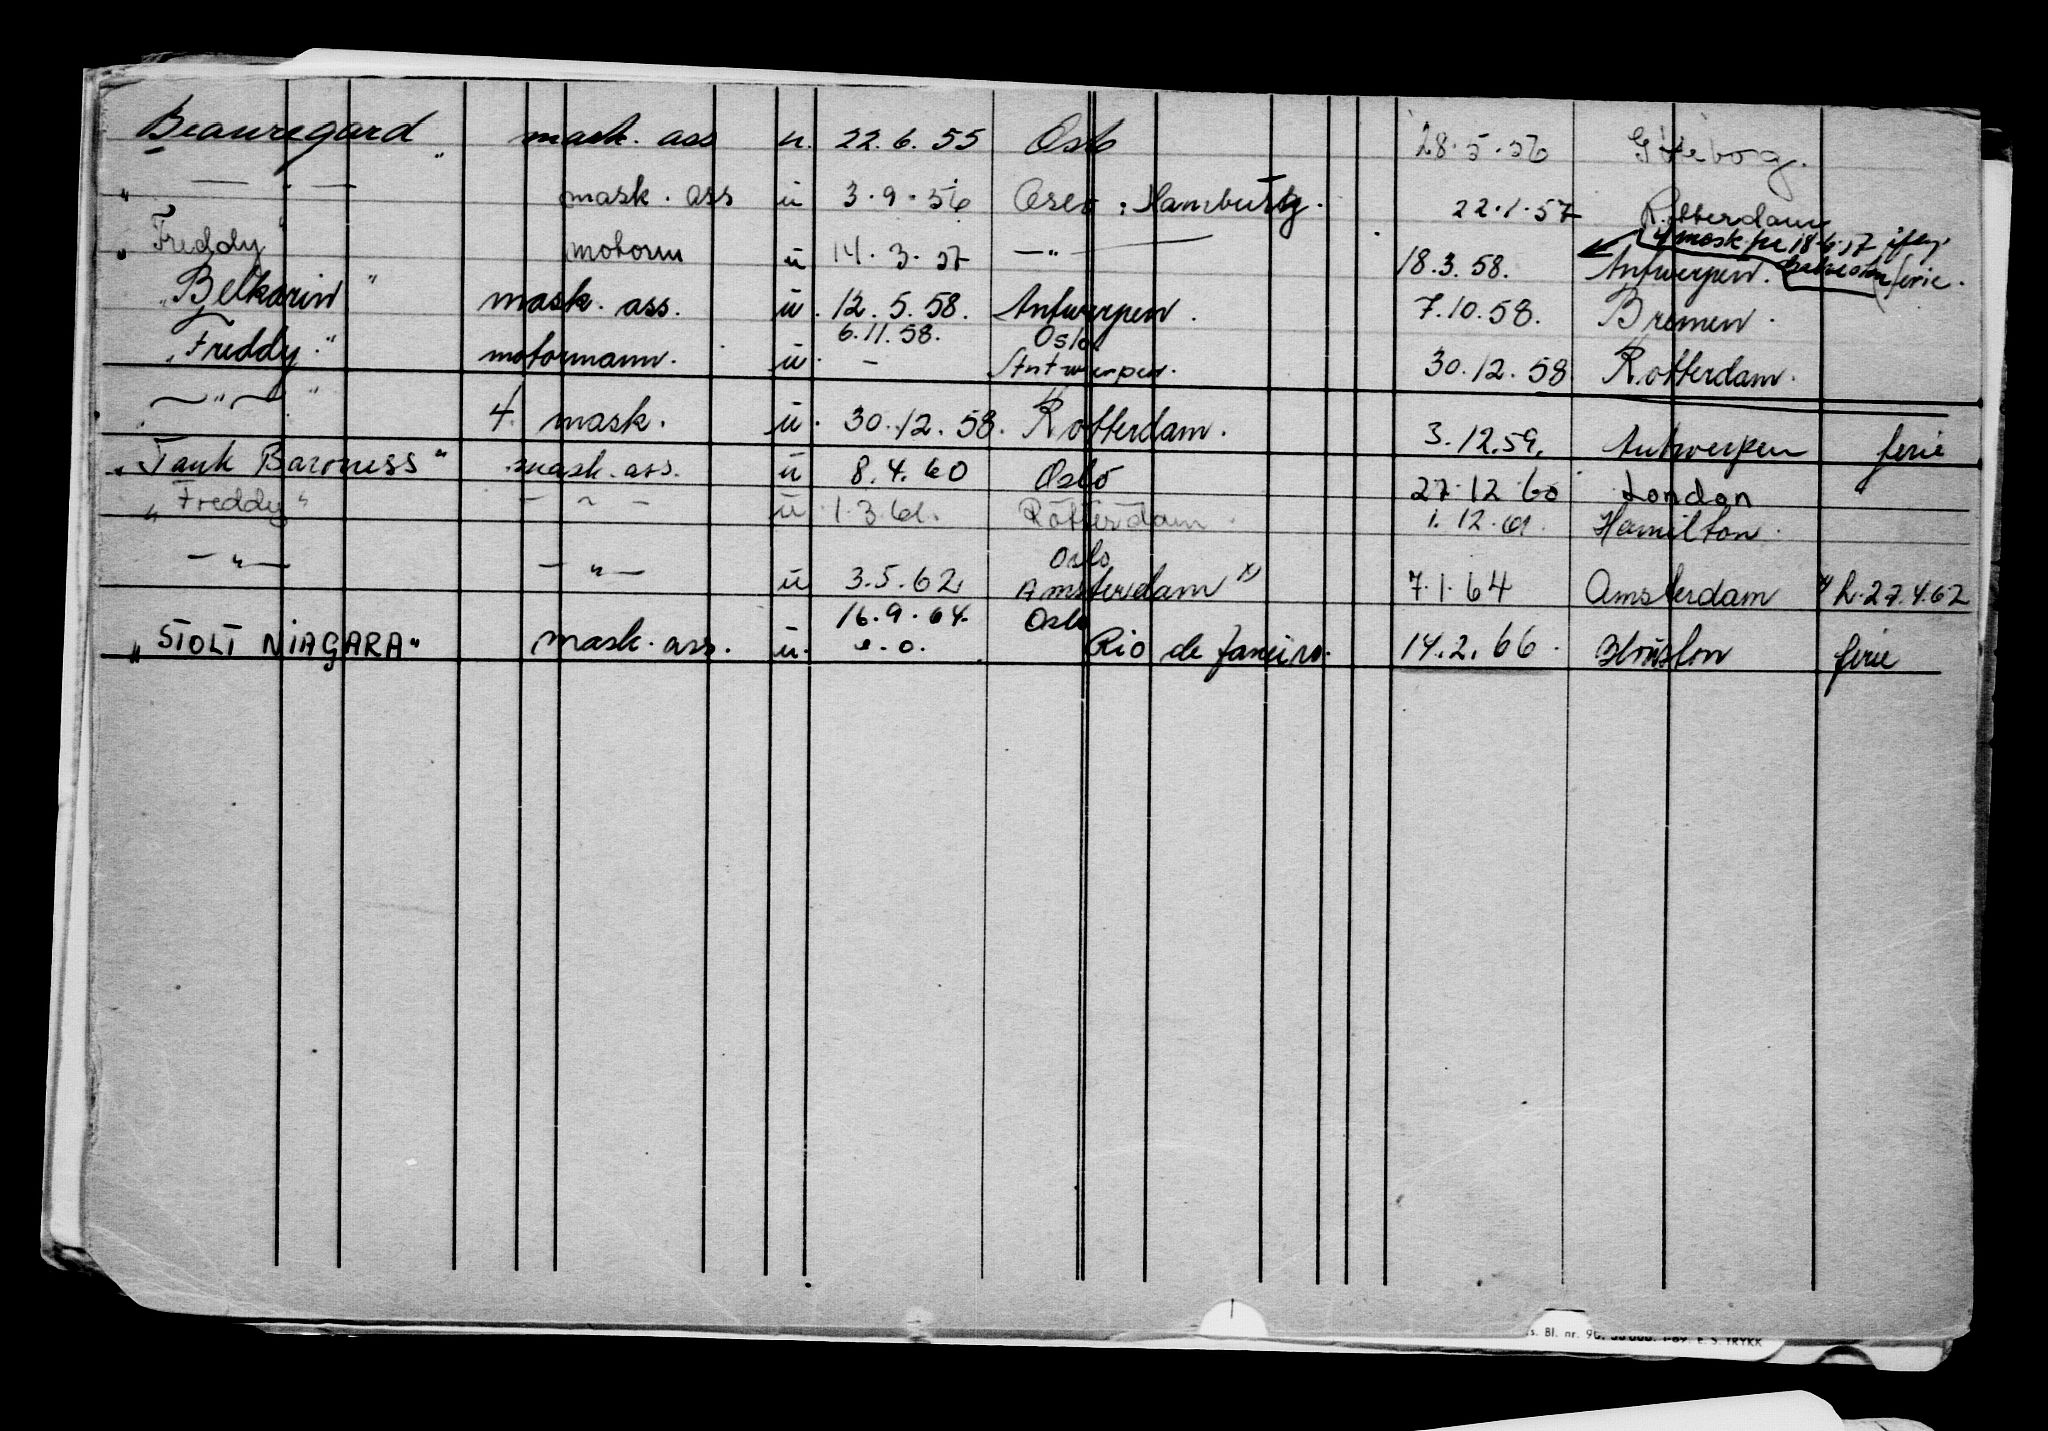 Beauregard " mask. ass u. 22.6.55 Oslo 28.5.56 Göteborg.
" — " — mask. ass u 3.9.56 Oslo : Hamburg. 22.1.57 Rotterdam
4 mask fra 18.6.57
" Freddy " motorm u 14.3.57 — " — 18.3.58. Antwerpen. ferie.
" Belkarin " mask. ass. u. 12.5.58. Antwerpen. 7.10.58. Bremen.
6.11.58. Oslo
" Freddy " motormann. u. — Antwerpen. 30.12.58 Rotterdam.
— " — " 4 mask. u. 30.12.58. Rotterdam. 3.12.59. Antwerpen ferie
" Tank Baroness " mask. ass. u 8.4.60 Oslo 27.12.60 London
" Freddy " — " — u. 1.3.61. Rotterdam. 1.12.61. Hamilton.
Oslo
— " — — " — u 3.5.62 Amsterdam x) 7.1.64 Amsterdam x) h. 27.4.62
16.9.64. Oslo
" STOLT NIAGARA " mask. ass. u. e.o. Rio de Janeiro. 14.2.66. Houston ferie
s. Bl. nr. 90. E. S. TRYKK